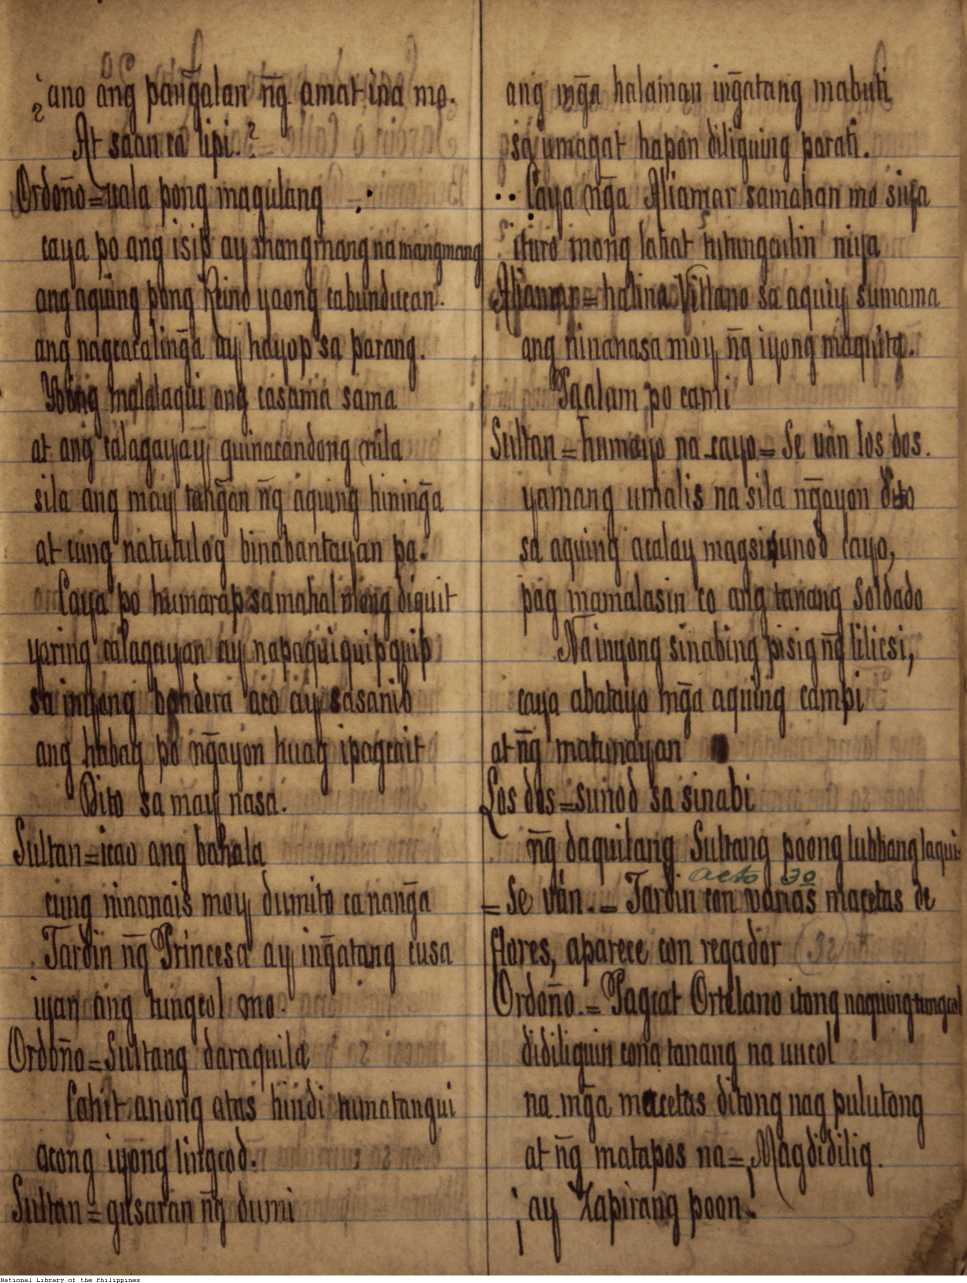 ¿ano ang pang̃alan ñg amat ina mo.
At saan ca lipi.?
Ordoño=uala pong magulang
caya po ang isip ay mangmang na mangmang
ang aquing pong Reino yaong cabunducan.
ang nagcacaling̃a ay hayop sa parang.
Yaong malalaqui ang casama sama
at ang calagayay guinacandong nila
sila ang may tang̃an ñg aquing hining̃a
at cung natutulog binabantayan pa.
Caya po humarap sa mahal mong diquit
yaring calagayan ay napaquiquipquip
sa inyong bandera aco ay sasanib
ang habag po ng̃ayon huag ipagcait
Dito sa may nasa.
Sultan=icao ang bahala
cung ninanais moy dumito ca nang̃a
Jardin ñg Princesa ay ing̃atang cusa
iyan ang tungcol mo.
Ordoño=Sultang daraquila
Cahit anong atas hindi tumatangui
acong iyong lingcod.
Sultan=gusaran ñg dumi
ang mg̃a halaman ing̃atang mabuti
sa umagat hapon diliguing parati.
Caya ng̃a Aliamar samahan mo siya
ituro mong lahat tutungculin niya
Aliamar=halina Villano sa aquiy sumama
ang ninanasa moy ñg iyong maquita.
Paalam po cami
Sultan=humayo na cayo=Se ván los dos.
yamang umalis na sila ng̃ayon dito
sa aquing acalay magsisunod cayo,
pag mamalasin co ang tanang Soldado
Na inyong sinabing pisig ñg lilicsi,
caya abatayo mg̃a aquing campi
at ñg matunayan
Los dos=sunod sa sinabi
ñg daquilang Sultang poong lubhang laqui.
acto 30
=Se ván.=Jardin con varias macetas de
flores, aparece con regador
Ordoño.=Pagcat Ortelano itong naguing tungcol
didiliguin cona tanang na uucol
na mg̃a macetas ditong nag pulutong
at ñg matapos na=Magdidilig.
¡ay Zapirang poon!